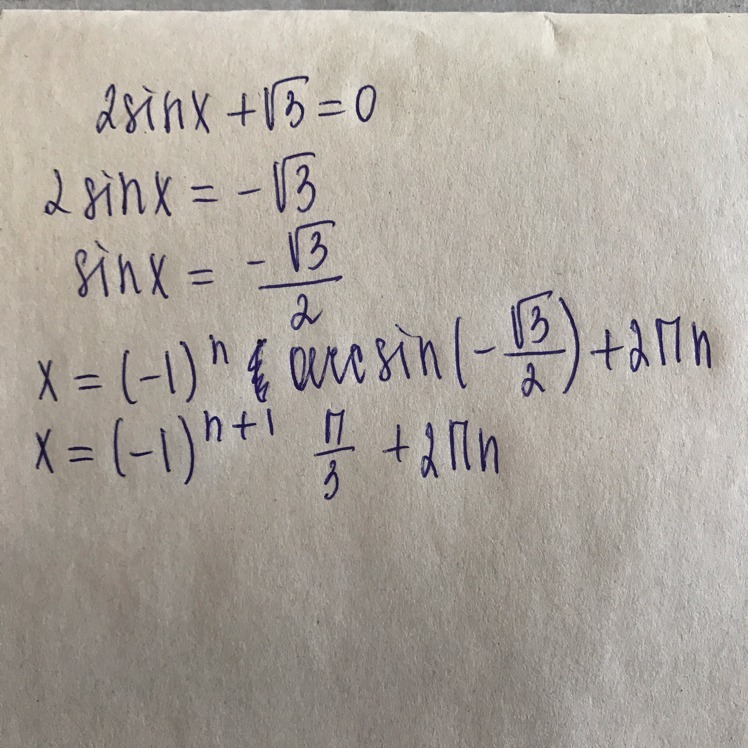 2sinx + √3 = 0
2 sinx = - √3
sinx = -√3/2
x = (-1)^n arcsin(-√3/2) + 2Πn
x = (-1)^{n+1} Π/3 + 2Πn